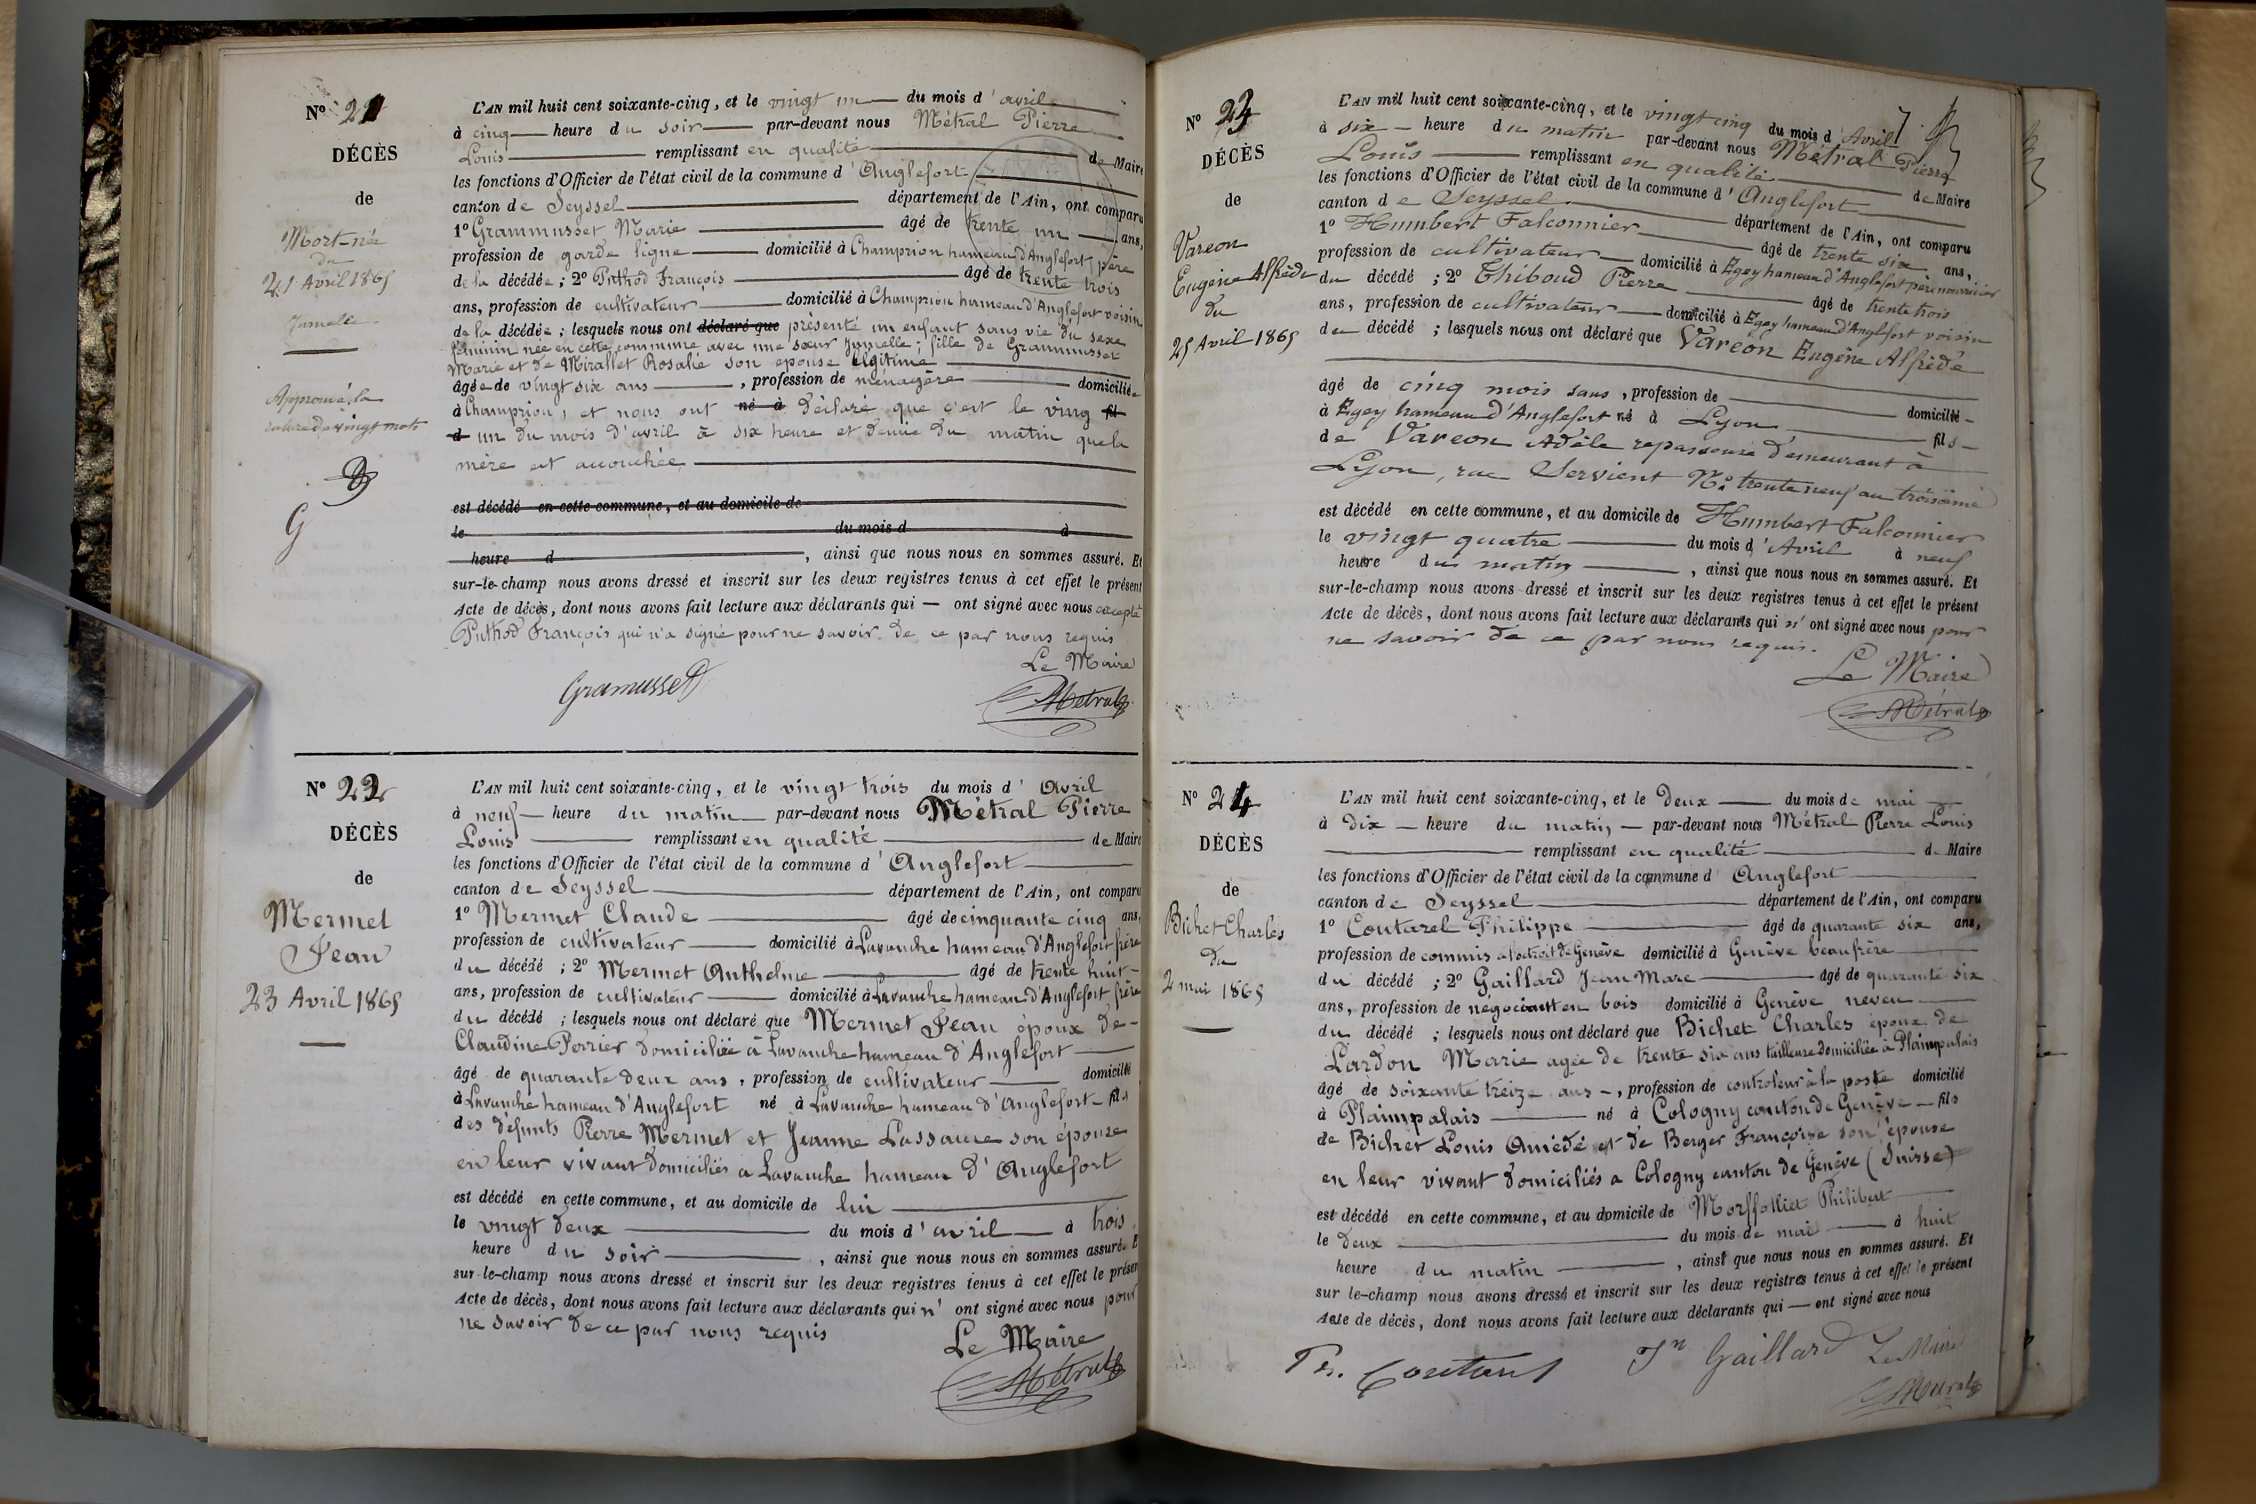 N° 21
DÉCÈS
de
Mort-née
du
21 Avril 1865
Jumelle
Approuvé la
rature de vingt mots
G
L'AN mil huit cent soixante-cinq, et le vingt un du mois d'avril
à cinq heure du soir par-devant nous Métral Pierre
Louis remplissant en qualité de Maire
les fonctions d'Officier de l'état civil de la commune d'Anglefort
canton de Seyssel département de l'Ain, ont comparu
1° Grammusset Marie âgé de trente un ans,
profession de garde ligne domicilié à Champrion hameau d'Anglefort père
de la décédée ; 2° Puthod François âgé de trente trois
ans, profession de cultivateur domicilié à Champrion hameau d'Anglefort voisin
de la décédée ; lesquels nous ont déclaré que présenté un enfant sans vie du sexe
féminin née en cette commune avec une sœur jumelle ; fille de Grammusset
Marie et de Mirallet Rosalie son épouse légitime
âgée de vingt six ans , profession de ménagère domiciliée
à Champrion, et nous ont né à déclaré que c'est le ving fil
d un du mois d'avril à six heure et demie du matin que la
mère est accouchée
est décédé en cette commune, et au domicile de
le du mois d à
heure d , ainsi que nous nous en sommes assuré. Et
sur-le-champ nous avons dressé et inscrit sur les deux registres tenus à cet effet le présent
Acte de décès, dont nous avons fait lecture aux déclarants qui — ont signé avec nous excepté
Puthod François qui n'a signé pour ne savoir de ce par nous requis
Le Maire
Gramusset
Métral
N° 22
DÉCÈS
de
Mermet
Jean
23 Avril 1865
L'AN mil huit cent soixante-cinq, et le vingt trois du mois d'Avril
à neuf heure du matin par-devant nous Métral Pierre
Louis remplissant en qualité de Maire
les fonctions d'Officier de l'état civil de la commune d'Anglefort
canton de Seyssel département de l'Ain, ont comparu
1° Mermet Claude âgé de cinquante cinq ans,
profession de cultivateur domicilié à Lavanche hameau d'Anglefort frère
du décédé ; 2° Mermet Anthelme âgé de trente huit
ans, profession de cultivateur domicilié à Lavanche hameau d'Anglefort frère
du décédé ; lesquels nous ont déclaré que Mermet Jean époux de
Claudine Perrier domiciliée à Lavanche hameau d'Anglefort
âgé de quarante deux ans , profession de cultivateur domicilié
à Lavanche hameau d'Anglefort né à Lavanche hameau d'Anglefort fils
des défunts Pierre Mermet et Jeanne Lassauce son épouse
en leur vivant domiciliés a Lavanche hameau d'Anglefort
est décédé en cette commune, et au domicile de lui
le vingt deux du mois d'avril à trois
heure du soir , ainsi que nous nous en sommes assuré. E
sur-le-champ nous avons dressé et inscrit sur les deux registres tenus à cet effet le présen
Acte de décès, dont nous avons fait lecture aux déclarants qui n' ont signé avec nous pour
ne savoir de ce par nous requis
Le Maire
Métral
N° 23
DÉCÈS
de
Vareon
Eugène Alfrède
du
25 Avril 1865
L'AN mil huit cent soixante-cinq, et le vingt cinq du mois d'Avril
à six heure du matin par-devant nous Métral Pierre
Louis remplissant en qualité de Maire
les fonctions d'Officier de l'état civil de la commune d'Anglefort
canton de Seyssel département de l'Ain, ont comparu
1° Humbert Falconnier âgé de trente six ans,
profession de cultivateur domicilié à Egey hameau d'Anglefort père nourricier
du décédé ; 2° Thiboud Pierre âgé de trente trois
ans, profession de cultivateur domicilié à Egey hameau d'Anglefort voisin
du décédé ; lesquels nous ont déclaré que Vareon Eugène Alfrède
âgé de cinq mois sans , profession de domicilié
à Egey hameau d'Anglefort né à Lyon fils
de Vareon Adèle repasseuse demeurant à
Lyon, rue Servient N° trente neuf au troisième
est décédé en cette commune, et au domicile de Humbert Falconnier
le vingt quatre du mois d'Avril à neuf
heure du matin , ainsi que nous nous en sommes assuré. Et
sur-le-champ nous avons dressé et inscrit sur les deux registres tenus à cet effet le présent
Acte de décès, dont nous avons fait lecture aux déclarants qui n' ont signé avec nous pour
ne savoir de ce par nous requis.
Le Maire
Métral
N° 24
DÉCÈS
de
Bichet Charles
du
2 mai 1865
L'AN mil huit cent soixante-cinq, et le deux du mois de mai
à dix heure du matin par-devant nous Métral Pierre Louis
remplissant en qualité de Maire
les fonctions d'Officier de l'état civil de la commune d'Anglefort
canton de Seyssel département de l'Ain, ont comparu
1° Coutarel Philippe âgé de quarante six ans,
profession de commis a l'octroit de Genève domicilié à Genève beaufrère
du décédé ; 2° Gaillard Jean Marc âgé de quarante six
ans, profession de négociant en bois domicilié à Genève neveu
du décédé ; lesquels nous ont déclaré que Bichet Charles époux de
Lardon Marie agée de trente six ans tailleuse domiciliée à Plaimpalais
âgé de soixante treize ans , profession de controleur à la poste domicilié
à Plaimpalais né à Cologny canton de Genève fils
de Bichet Louis Amédé et de Berger Françoise son épouse
en leur vivant domiciliés a Cologny canton de Genève (Suisse)
est décédé en cette commune, et au domicile de Philibert
le deux du mois de mai à huit
heure du matin , ainsi que nous nous en sommes assuré. Et
sur le-champ nous avons dressé et inscrit sur les deux registres tenus à cet effet le présent
Acte de décès, dont nous avons fait lecture aux déclarants qui — ont signé avec nous
Jn Gaillard Le Maire
Métral